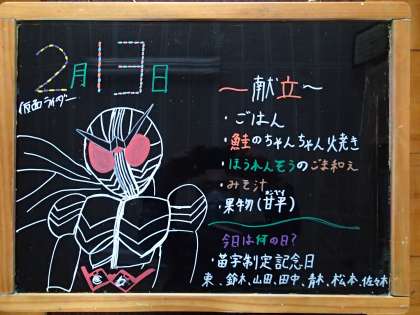 2月13日
仮面ライダー
〜献立〜
・ごはん
・鮭のちゃんちゃん火焼き
・ほうれんそうのごま和え
・みそ汁
・果物(甘平)
今日は何の日?
・苗字制定記念日
東、鈴木、山田、田中、青木、松本、佐々木